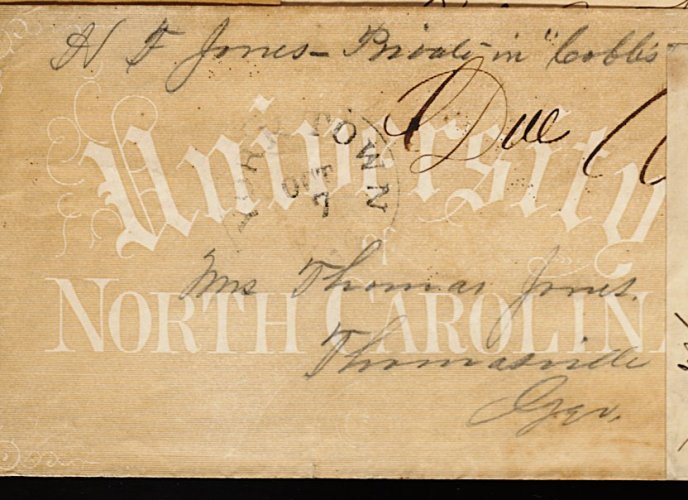 H F Jones - Private in "Cobb's
Due
YORKTOWN
OCT
7
University
of
NORTH CAROLINA
Mrs Thomas Jones.
Thomasville
Geo.